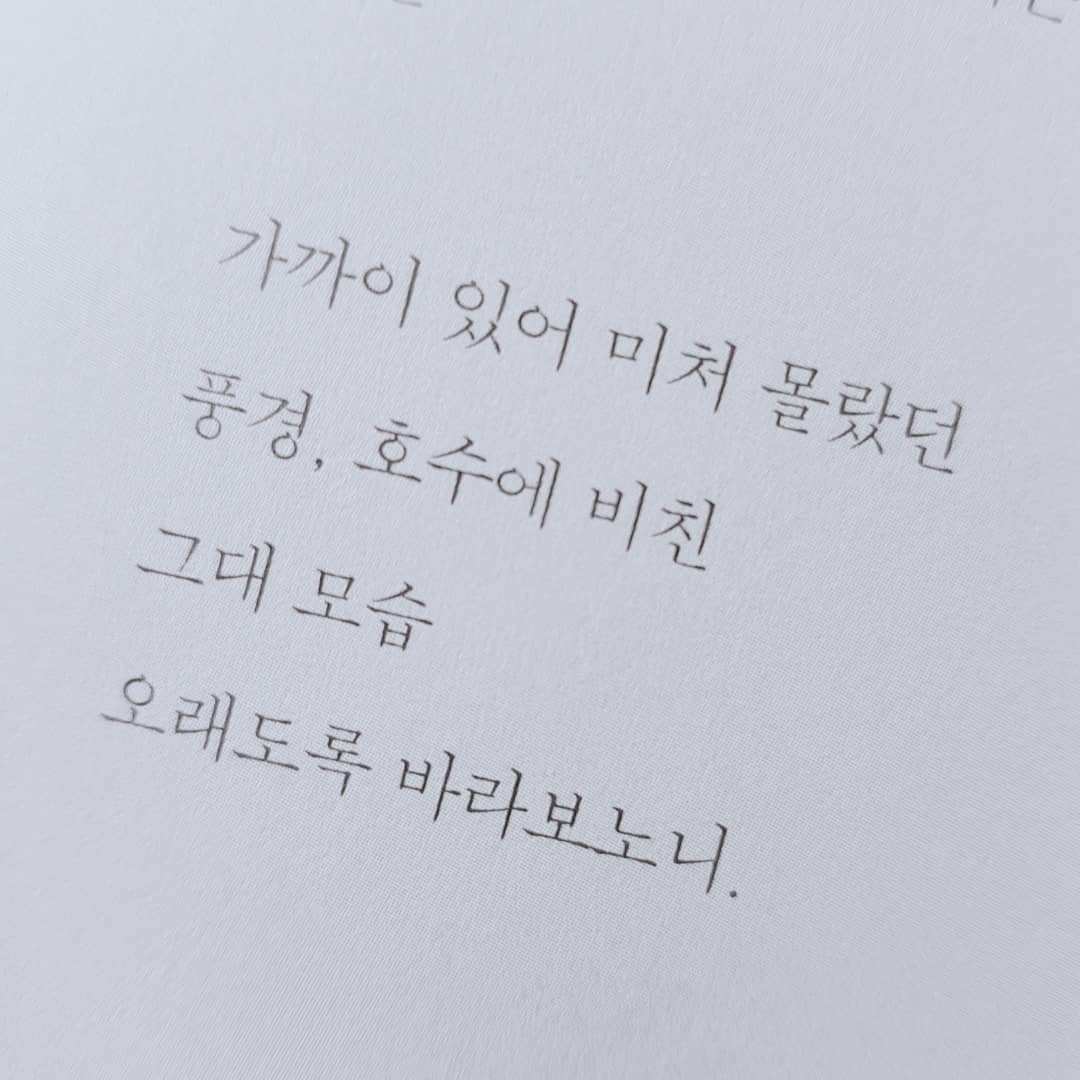 가까이 있어 미처 몰랐던
풍경, 호수에 비친
그대 모습
오래도록 바라보노니.